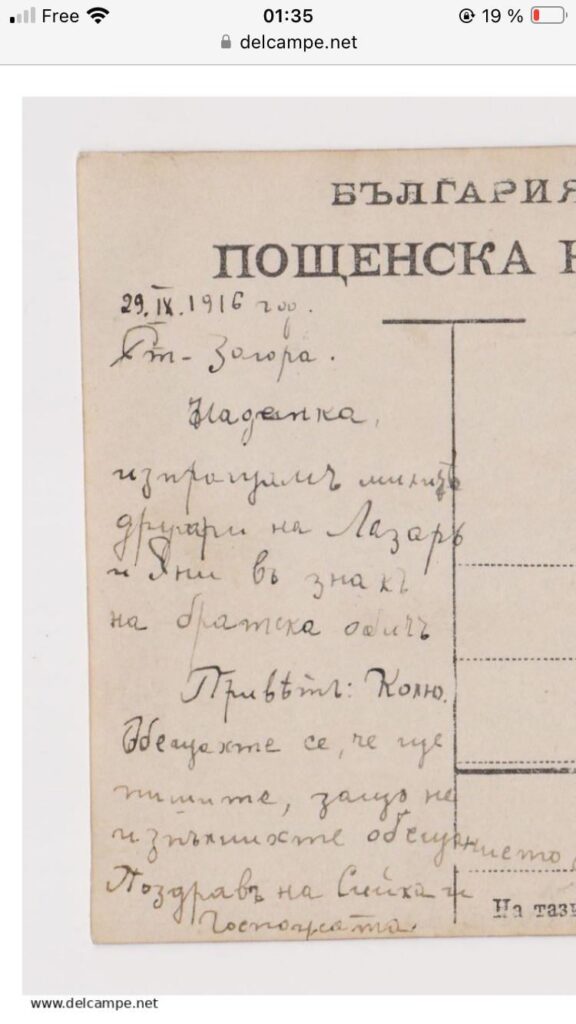 Free 01:35 19 %
delcampe.net
БЪЛГАРИЯ
ПОЩЕНСКА
29.IX.1916 год.
Ст- Загора.
Наденка,
изпращамъ милитѣ
другари на Лазаръ
и Яни въ знакъ
на братска обичъ
Привѣтъ: Колю.
Обещахте се, че ще
пишите, защо не
изпълнихте обещанието
Поздравъ на Сийка и
Госпожата.
На тази
www.delcampe.net